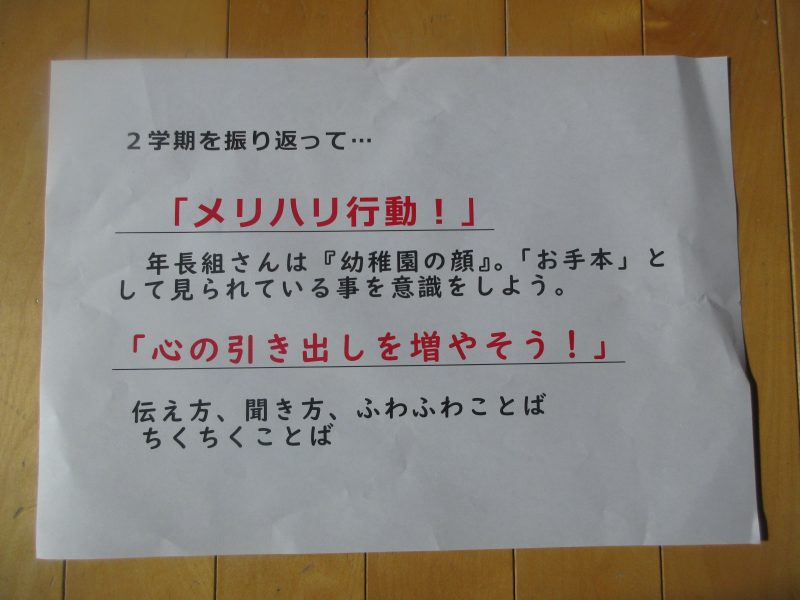 ２学期を振り返って…
「メリハリ行動！」
年長組さんは『幼稚園の顔』。「お手本」と
して見られている事を意識をしよう。
「心の引き出しを増やそう！」
伝え方、聞き方、ふわふわことば
ちくちくことば